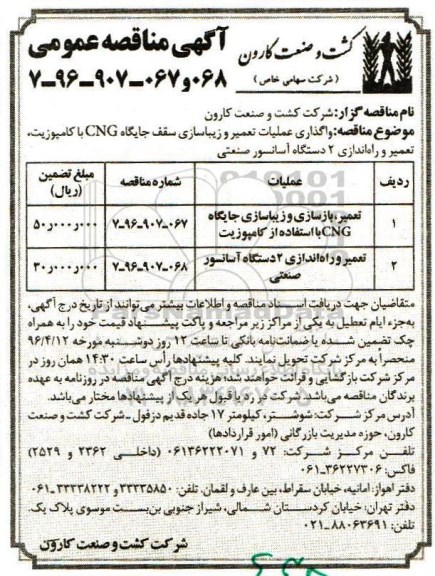 کشت و صنعت کارون
( شرکت سهامی خاص )
آگهی مناقصه عمومی
۷-۹۶-۹۰۷-۰۶۷و۰۶۸
نام مناقصه گزار: شرکت کشت و صنعت کارون
موضوع مناقصه: واگذاری عملیات تعمیر و زیباسازی سقف جایگاه CNG با کامپوزیت،
تعمیر و راه‌اندازی ۲ دستگاه آسانسور صنعتی
ردیف عملیات شماره مناقصه مبلغ تضمین (ریال)
۱ تعمیر، بازسازی و زیباسازی جایگاه CNG با استفاده از کامپوزیت ۷-۹۶-۹۰۷-۰۶۷ ۵۰ر۰۰۰ر۰۰۰
۲ تعمیر و راه‌اندازی ۲ دستگاه آسانسور صنعتی ۷-۹۶-۹۰۷-۰۶۸ ۳۰ر۰۰۰ر۰۰۰
متقاضیان جهت دریافت اسناد مناقصه و اطلاعات بیشتر می‌توانند از تاریخ درج آگهی،
به‌جزء ایام تعطیل به یکی از مراکز زیر مراجعه و پاکت پیشنهاد قیمت خود را به همراه
چک تضمین شده یا ضمانت‌نامه بانکی تا ساعت ۱۲ روز دوشنبه مورخه ۹۶/۴/۱۲
منحصراً به مرکز شرکت تحویل نمایند. کلیه پیشنهادها رأس ساعت ۱۴:۳۰ همان روز در
مرکز شرکت بازگشایی و قرائت خواهند شد؛ هزینه درج آگهی مناقصه در روزنامه به عهده
برندگان مناقصه می‌باشد. شرکت در رد یا قبول هر یک از پیشنهادها مختار می‌باشد.
آدرس مرکز شرکت: شوشتر، کیلومتر ۱۷ جاده قدیم دزفول ـ شرکت کشت و صنعت
کارون، حوزه مدیریت بازرگانی (امور قراردادها)
تلفن مرکز شرکت: ۷۲ و ۰۶۱۳۶۲۲۲۰۷۱ (داخلی ۲۳۶۲ و ۲۵۲۹)
فاکس: ۰۶۱-۳۶۲۲۷۳۰۶
دفتر اهواز: امانیه، خیابان سقراط، بین عارف و لقمان. تلفن: ۳۳۳۳۵۸۵۰ و ۰۶۱-۳۳۳۳۸۲۲۲
دفتر تهران: خیابان کردستان شمالی، شیراز جنوبی بن‌بست موسوی پلاک یک.
تلفن: ۰۲۱-۸۸۰۶۳۶۹۱
شرکت کشت و صنعت کارون